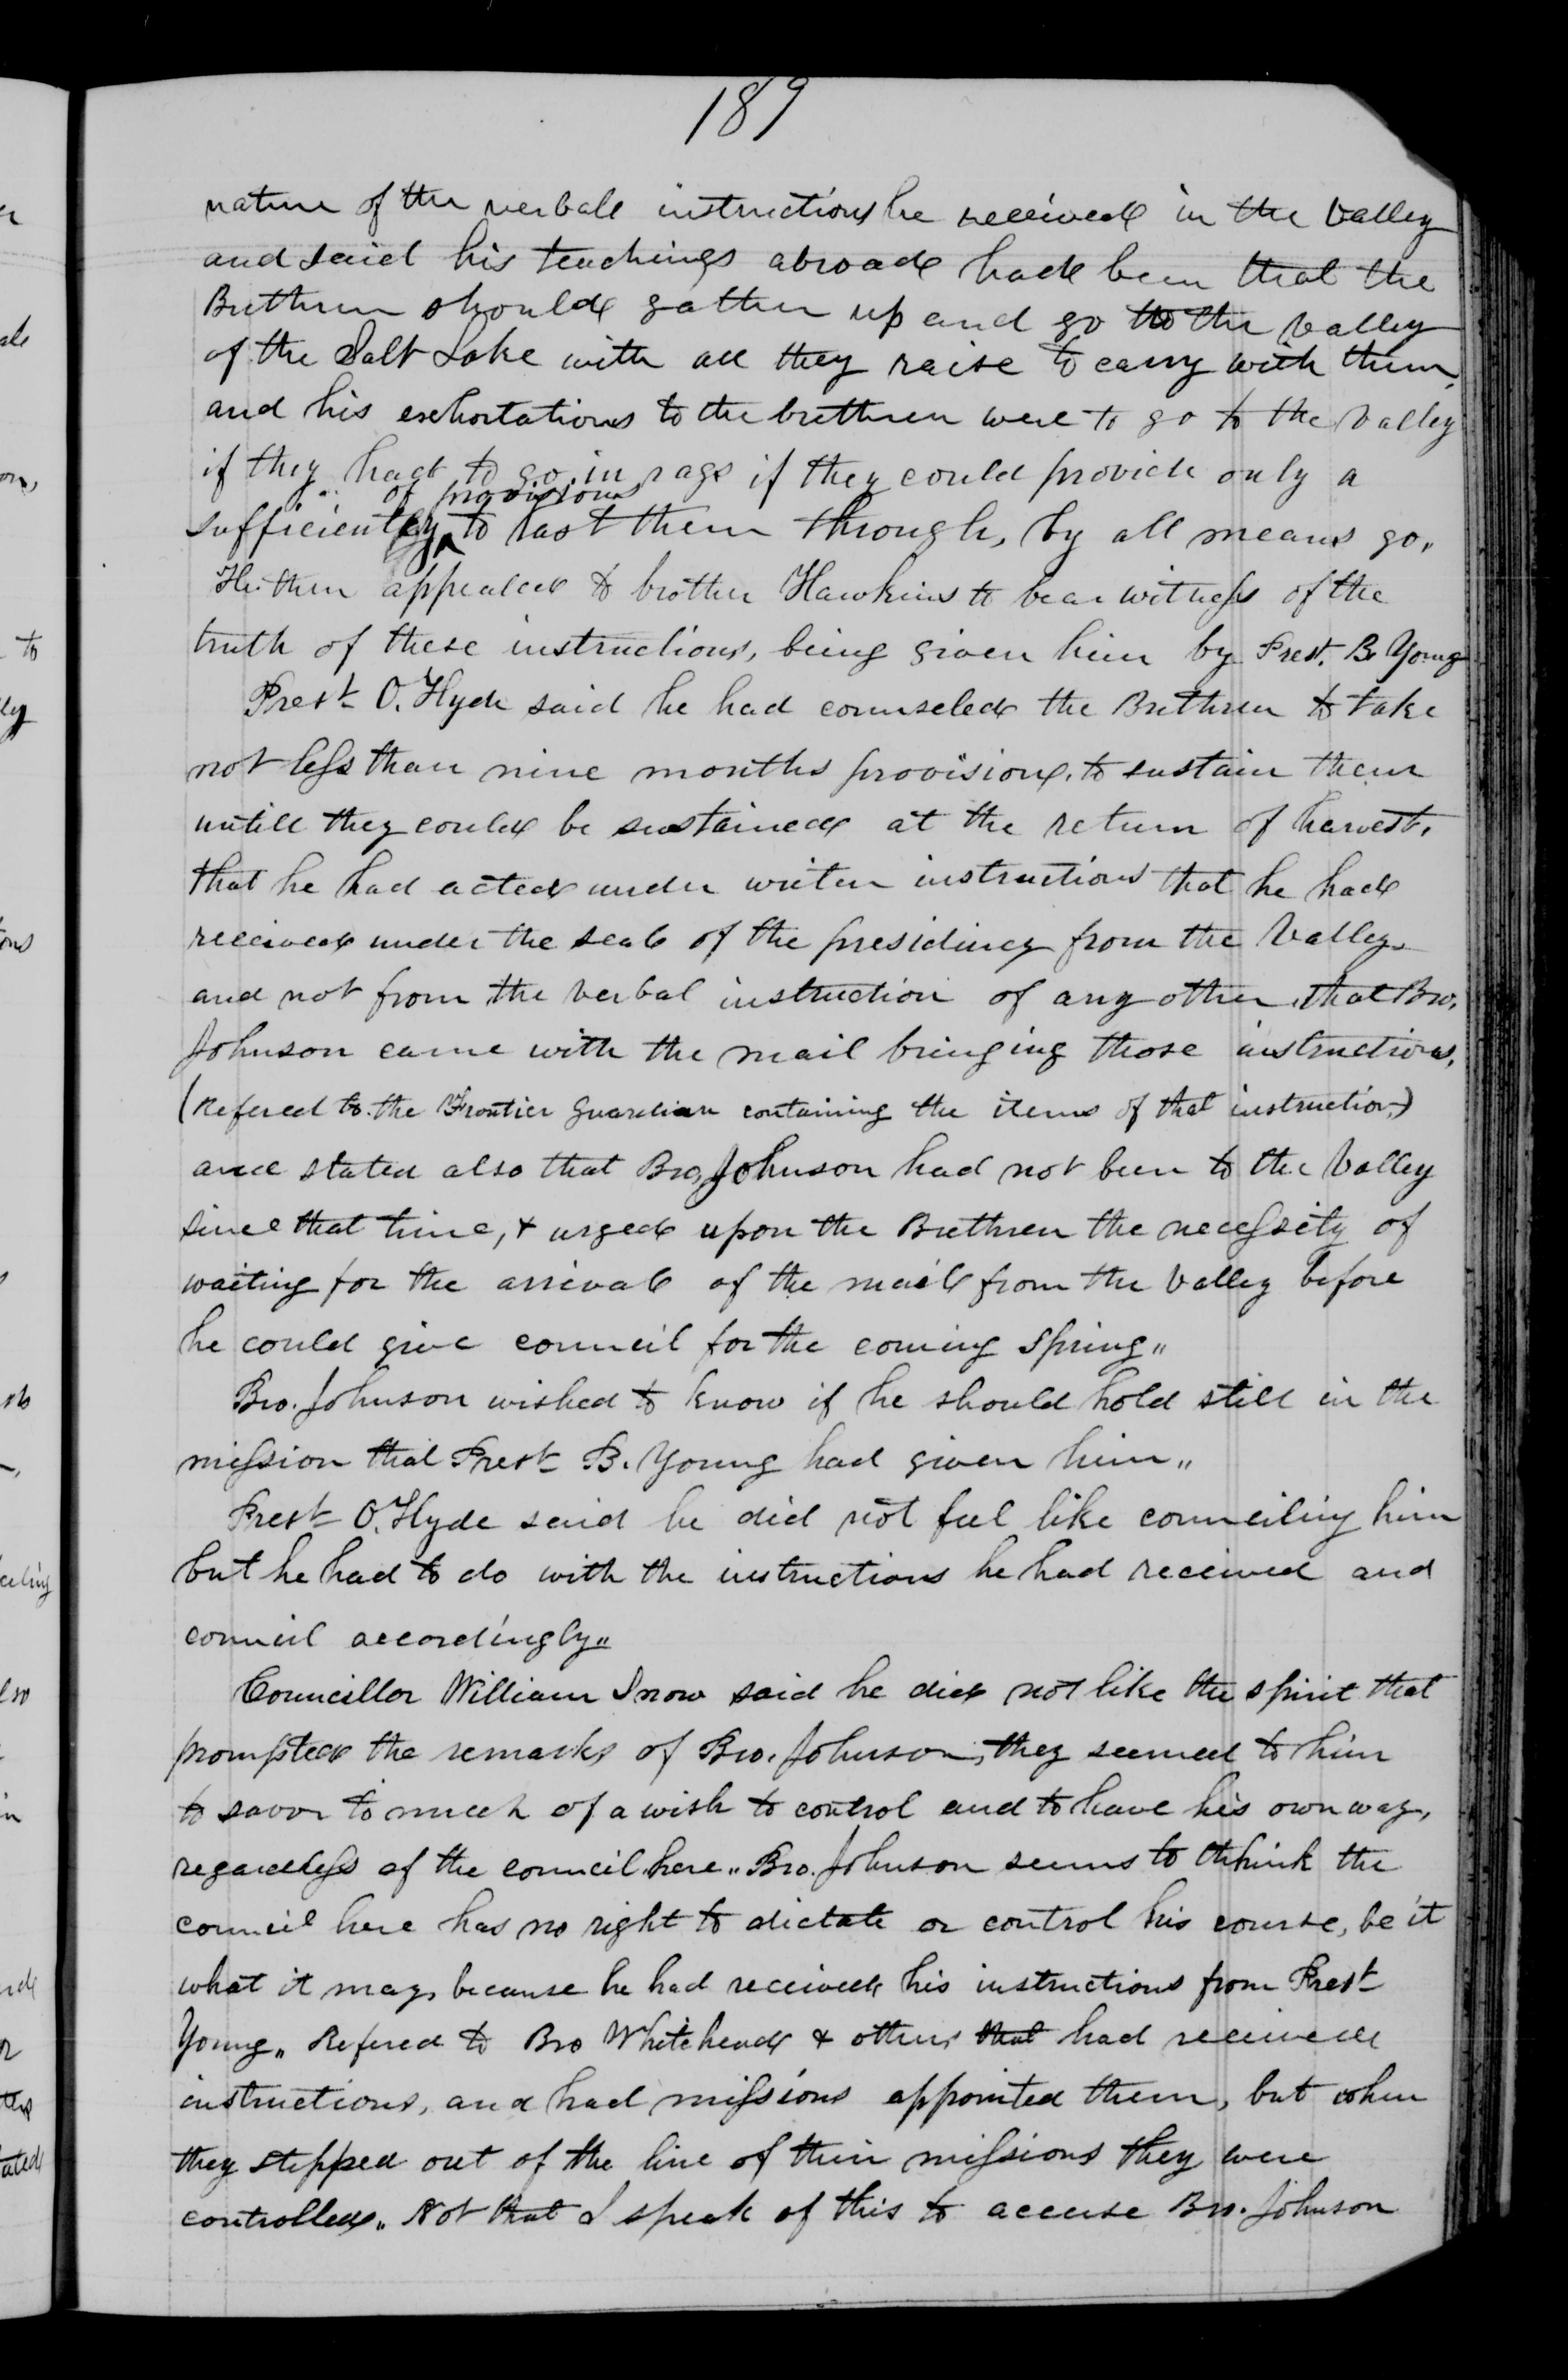 189
nature of the verball instructions he received in the Valley
and said his teachings abroad had been that the
Brethren should gather up and go to the valley
of the Salt Lake with all they raise to carry with them,
and his exhortations to the brethren were to go to the Valley
if they had to go in rags if they could provide only a
of provisions
sufficiently to last them through, by all means go.
He then appealed to brother Hawkins to bear witness of the
truth of these instructions, being given him by Prest. B. Young
Prest O. Hyde said he had counseled the Brethren to take
not less than nine months provisions. to sustain them
untill they could be sustained at the return of harvest.
that he had acted under writen instructions that he had
received under the seal of the presidincy from the Valley.
and not from the verbal instruction of any other, that Bro.
Johnson came with the mail bringing those instructions.
(Refered to the Frontier Guardian containing the items of that instruction,)
and stated also that Bro, Johnson had not been to the Valley
since that time, & urged upon the Brethren the necessity of
waiting for the arrival of the mail from the Valley before
he could give council for the coming spring„
Bro. Johnson wished to know if he should hold still in the
mission that Prest B. Young had given him„
Prest O. Hyde said he did not feel like counciling him
but he had to do with the instructions he had received and
council accordingly„
Councillor William Snow said he did not like the spirit that
prompted the remarks of Bro. Johnson, they seemed to him
to savor to much of a wish to control and to have his own way,
regardless of the council here„ Bro. Johnson seems to thhink the
council here has no right to dictate or control his course, be it
what it may, because he had received his instructions from Prest
Young„ Refered to Bro Whitehead & others that had received
instructions, and had missions appointed them, but when
they stepped out of the line of their missions they were
controlled„ Not that I speak of this to accuse Bro. Johnson